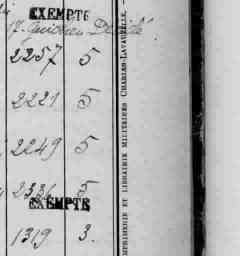 EXEMPTÉ
2257 5
2221 5
2249 5
2336 5
EXEMPTÉ
1319 3.
IMPRIMERIE ET LIBRAIRIE MILITAIRES CHARLES-LAVAUZELLE. —